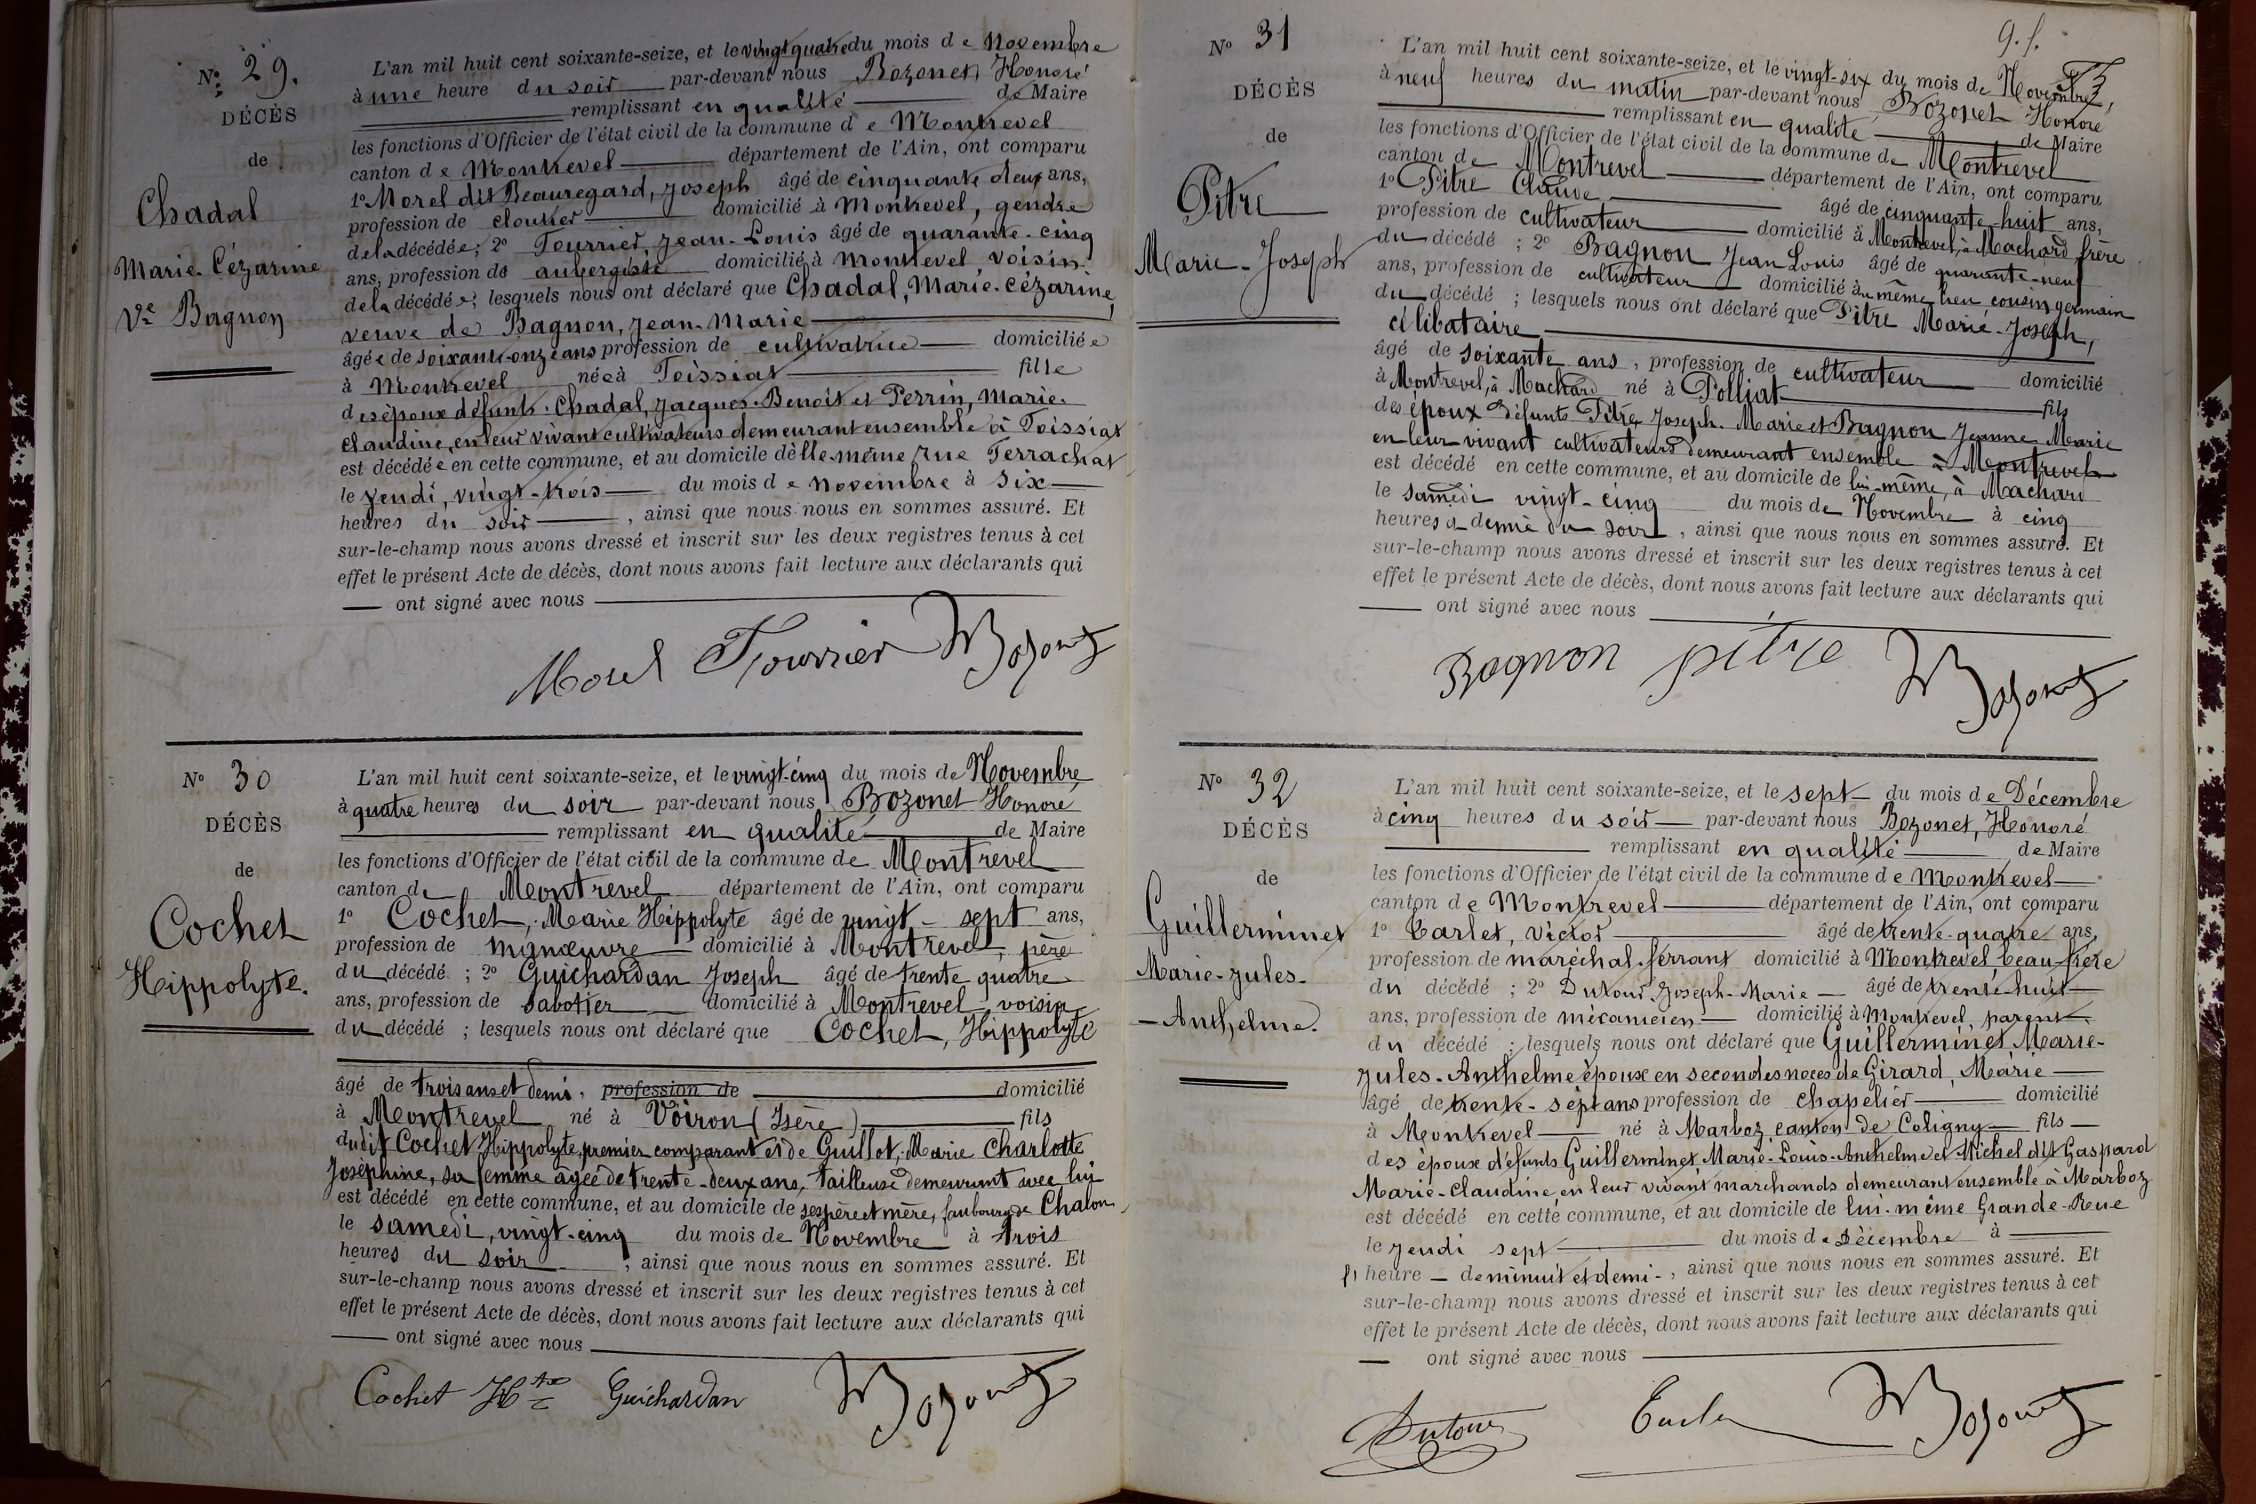 N° 29.
DÉCÈS
de
Chadal
Marie-Cézarine
Ve Bagnon
L'an mil huit cent soixante-seize, et le vingt quatre du mois de Novembre
à une heure du soir par-devant nous Bozonet, Honoré
remplissant en qualité de Maire
les fonctions d'Officier de l'état civil de la commune de Montrevel
canton de Montrevel département de l'Ain, ont comparu
1° Morel dit Beauregard, Joseph âgé de cinquante deux ans,
profession de cloutier domicilié à Montrevel, gendre
de la décédée; 2° Fourrier, Jean-Louis âgé de quarante-cinq
ans, profession de aubergiste domicilié à Montrevel, voisin
de la décédée; lesquels nous ont déclaré que Chadal, Marie-Cézarine,
veuve de Bagnon, Jean-Marie
âgée de soixante-onze ans profession de cultivatrice domiciliée
à Montrevel née à Foissiat fille
des époux défunts Chadal, Jacques-Benoit et Perrin, Marie-
Claudine, en leur vivant cultivateurs demeurant ensemble à Foissiat
est décédée en cette commune, et au domicile d'elle-même, rue Ferrachat
le Jeudi, vingt-trois du mois de novembre à six
heures du soir, ainsi que nous nous en sommes assuré. Et
sur-le-champ nous avons dressé et inscrit sur les deux registres tenus à cet
effet le présent Acte de décès, dont nous avons fait lecture aux déclarants qui
ont signé avec nous
Morel Fourrier Bozonet
N° 30
DÉCÈS
de
Cochet
Hippolyte.
L'an mil huit cent soixante-seize, et le vingt-cinq du mois de Novembre,
à quatre heures du soir par-devant nous Bozonet Honoré
remplissant en qualité de Maire
les fonctions d'Officier de l'état civil de la commune de Montrevel
canton de Montrevel département de l'Ain, ont comparu
1° Cochet, Marie Hippolyte âgé de vingt-sept ans,
profession de manœuvre domicilié à Montrevel, père
du décédé; 2° Guichardan Joseph âgé de trente quatre
ans, profession de sabotier domicilié à Montrevel voisin
du décédé; lesquels nous ont déclaré que Cochet, Hippolyte
âgé de trois ans et demi, profession de domicilié
à Montrevel né à Voiron (Isère) fils
dudit Cochet Hippolyte, premier comparant et de Guillot, Marie Charlotte
Joséphine, sa femme âgée de trente-deux ans, tailleuse demeurant avec lui
est décédé en cette commune, et au domicile de ses père et mère, faubourg de Chalon,
le samedi, vingt-cinq du mois de Novembre à trois
heures du soir, ainsi que nous nous en sommes assuré. Et
sur-le-champ nous avons dressé et inscrit sur les deux registres tenus à cet
effet le présent Acte de décès, dont nous avons fait lecture aux déclarants qui
ont signé avec nous
Cochet Hte Guichardan Bozonet
9. f.
N° 31
DÉCÈS
de
Pitre
Marie-Joseph
L'an mil huit cent soixante-seize, et le vingt-six du mois de Novembre,
à neuf heures du matin par-devant nous Bozonet Honoré
remplissant en qualité de Maire
les fonctions d'Officier de l'état civil de la commune de Montrevel
canton de Montrevel département de l'Ain, ont comparu
1° Pitre Claude âgé de cinquante-huit ans,
profession de cultivateur domicilié à Montrevel, à Machard, frère
du décédé; 2° Bagnon Jean Louis âgé de quarante-neuf
ans, profession de cultivateur domicilié au même lieu cousin germain
du décédé; lesquels nous ont déclaré que Pitre Marie-Joseph,
célibataire
âgé de soixante ans, profession de cultivateur domicilié
à Montrevel, à Machard né à Polliat fils
des époux défunts Pitre Joseph-Marie et Bagnon Jeanne Marie
en leur vivant cultivateurs demeurant ensemble à Montrevel
est décédé en cette commune, et au domicile de lui-même, à Machard
le samedi vingt-cinq du mois de Novembre à cinq
heures & demie du soir, ainsi que nous nous en sommes assuré. Et
sur-le-champ nous avons dressé et inscrit sur les deux registres tenus à cet
effet le présent Acte de décès, dont nous avons fait lecture aux déclarants qui
ont signé avec nous
Bagnon pitre Bozonet
N° 32
DÉCÈS
de
Guillerminet
Marie-Jules-
-Anthelme.
L'an mil huit cent soixante-seize, et le sept du mois de Décembre
à cinq heures du soir par-devant nous Bozonet, Honoré
remplissant en qualité de Maire
les fonctions d'Officier de l'état civil de la commune de Montrevel
canton de Montrevel département de l'Ain, ont comparu
1° Carlet, Victor âgé de trente-quatre ans,
profession de maréchal-ferrant domicilié à Montrevel, beau-frère
du décédé; 2° Dutour, Joseph-Marie âgé de trente-huit
ans, profession de mécanicien domicilié à Montrevel, parent
du décédé; lesquels nous ont déclaré que Guillerminet, Marie-
Jules-Anthelme époux en secondes noces de Girard, Marie
âgé de trente-sept ans profession de chapelier domicilié
à Montrevel né à Marboz, canton de Coligny fils
des époux défunts Guillerminet Marie-Louis-Anthelme et Michel dit Gaspard
Marie-Claudine, en leur vivant marchands demeurant ensemble à Marboz
est décédé en cette commune, et au domicile de lui-même Grande-Rue
le jeudi sept du mois de Décembre à
heure de minuit et demi, ainsi que nous nous en sommes assuré. Et
sur-le-champ nous avons dressé et inscrit sur les deux registres tenus à cet
effet le présent Acte de décès, dont nous avons fait lecture aux déclarants qui
ont signé avec nous
Dutour Carlet Bozonet